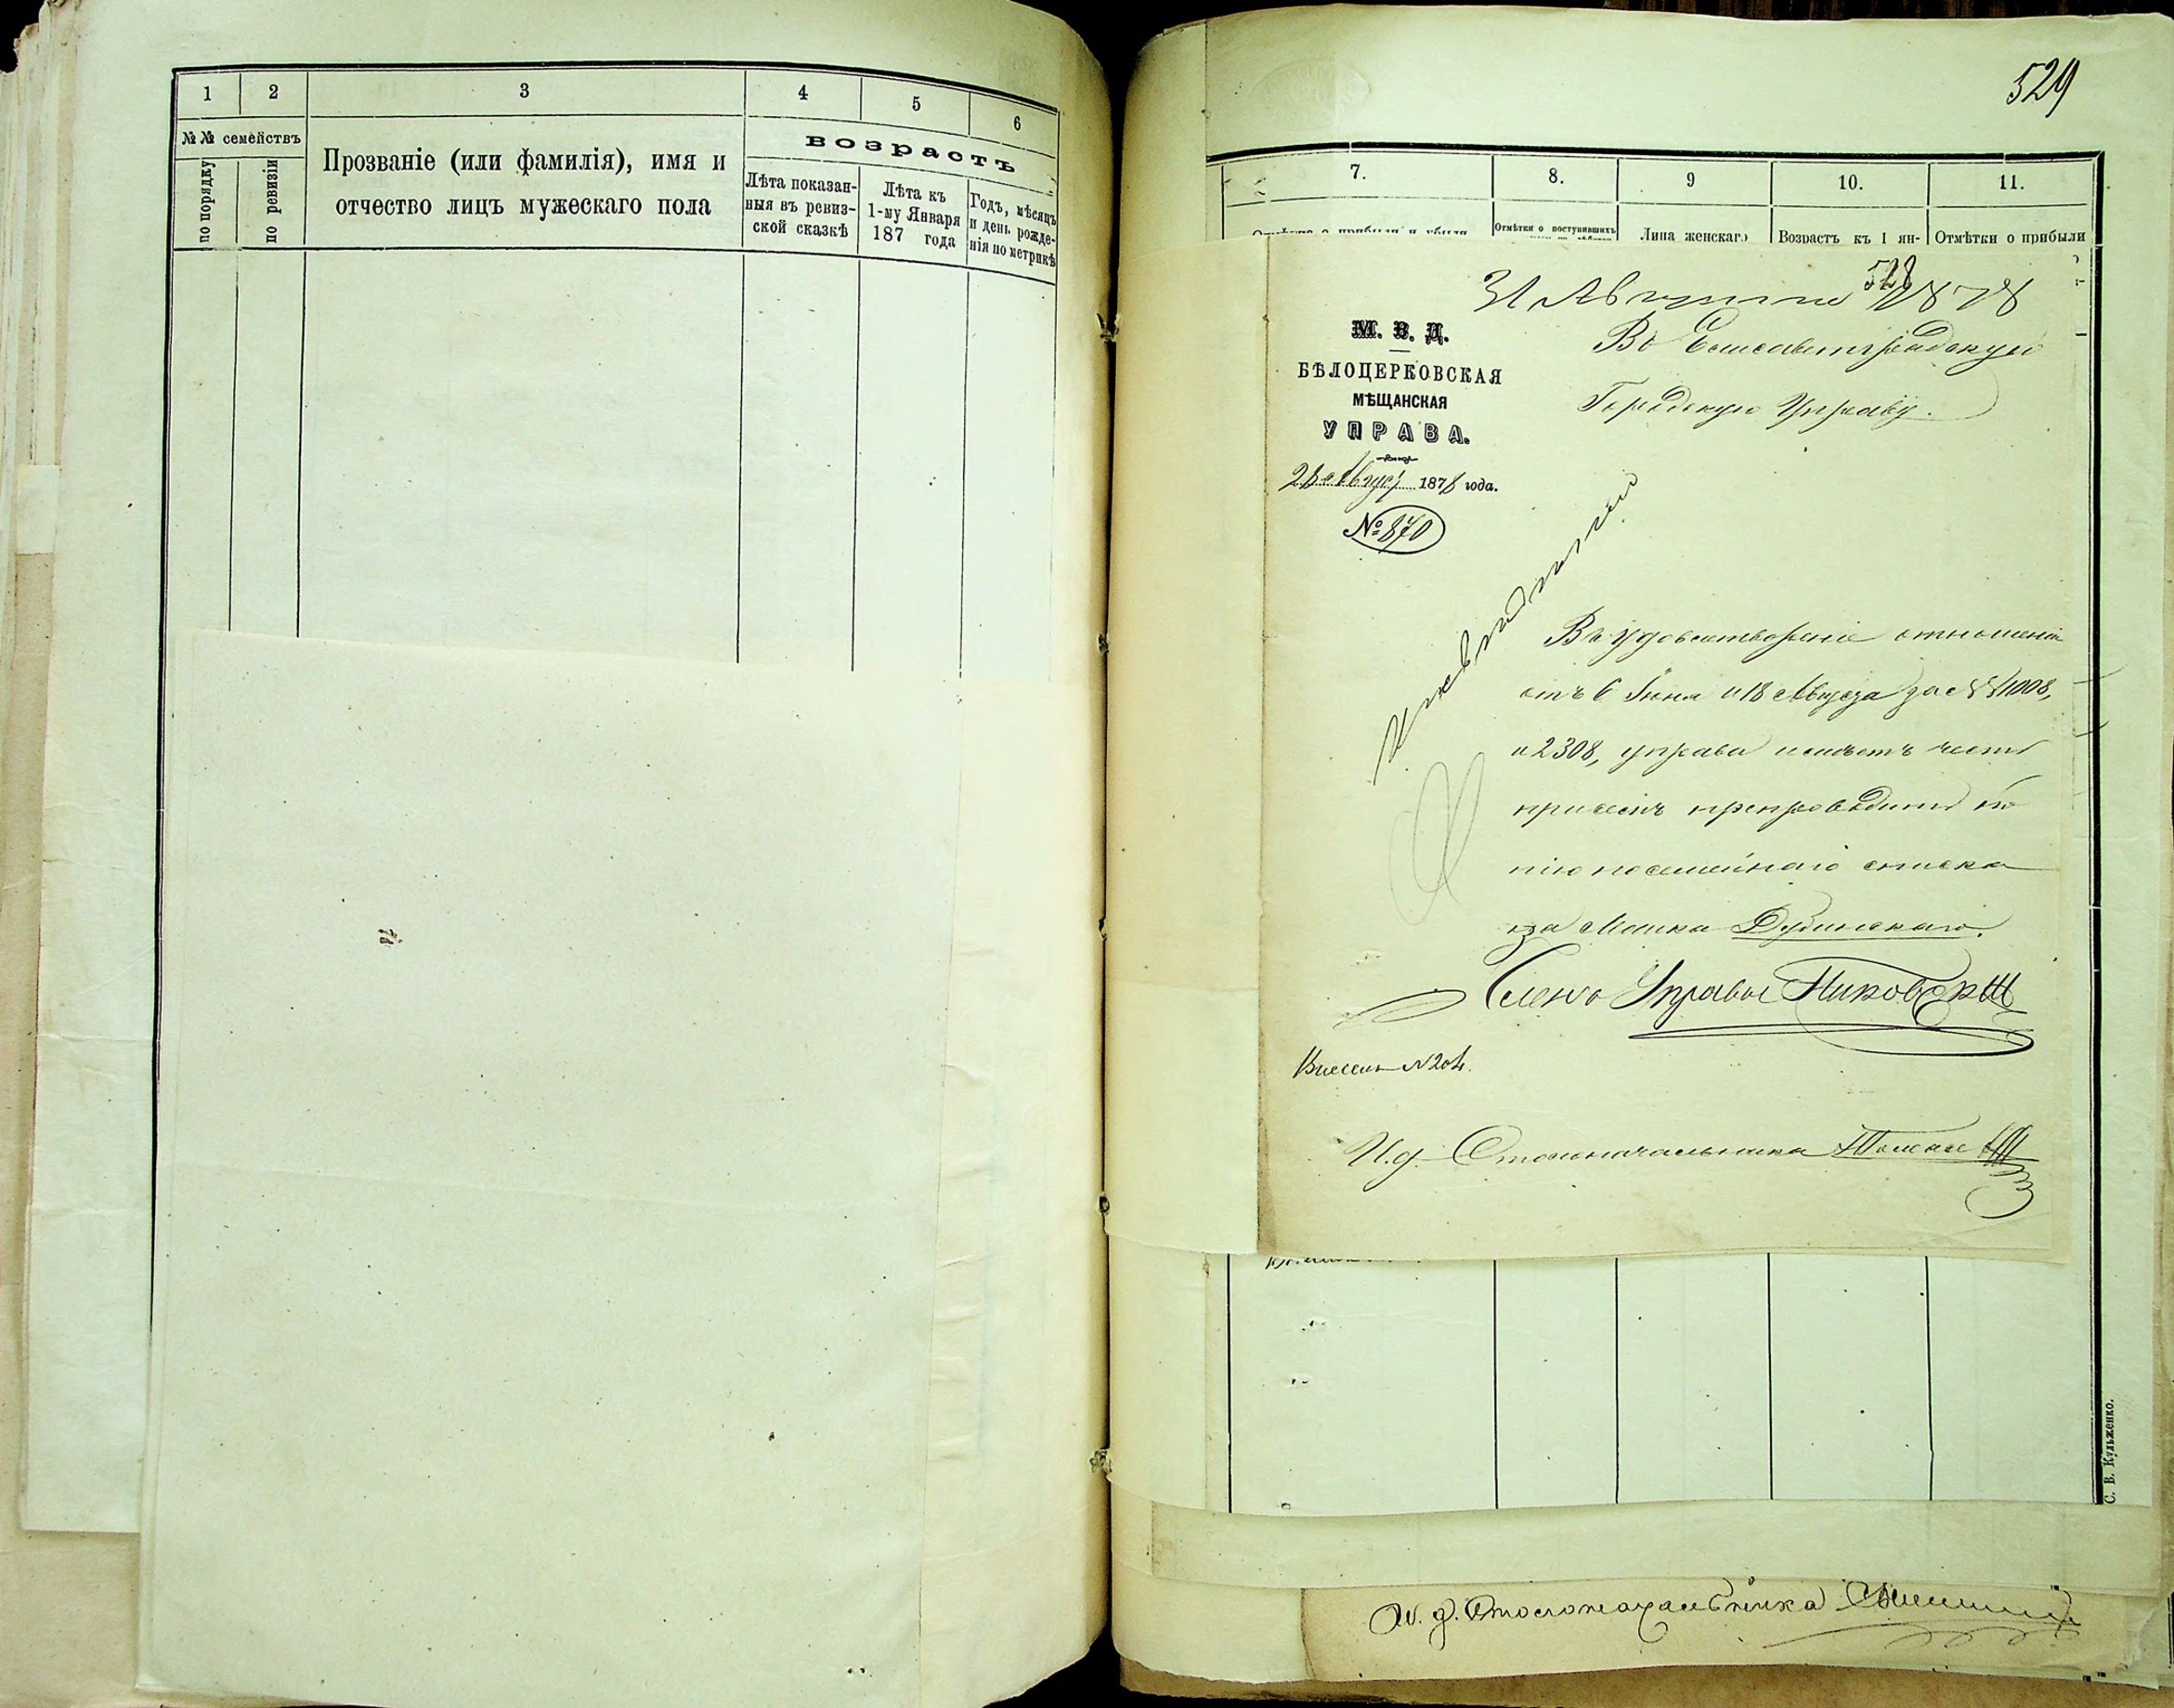 1 2 3 4 5 6
№№ семействъ
по порядку
по ревизіи
Прозваніе (или фамилія), имя и
отчество лицъ мужескаго пола
возрастъ
Лѣта показан-
ныя въ ревиз-
ской сказкѣ
Лѣта къ
1-му Января
187 года
Годъ, мѣсяцъ
и день рожде-
нія по метрикѣ
529
7. 8. 9 10. 11.
Отмѣтки о прибыли и убыли
Отмѣтки о поступившихъ
Лица женскаго
Возрастъ къ 1 ян-
Отмѣтки о прибыли
528
31 Августа 1878
М. В. Д.
БѢЛОЦЕРКОВСКАЯ
МѢЩАНСКАЯ
УПРАВА.
28 Август 1878 года.
№ 870
Въ Елисаветградскую
Городскую Управу.
Въ удовлетвореніе отношенія
отъ 6 Іюня и 18 Августа за №№ 1008,
и 2308, управа имѣетъ честь
при семъ препроводить ко
пію посемейнаго списка
за Мошка Дубинскаго.
Членъ Управы
Внесенъ № 204.
И. д. Столоначальника
И. д. Столоначальника
С. В. Кульженко.